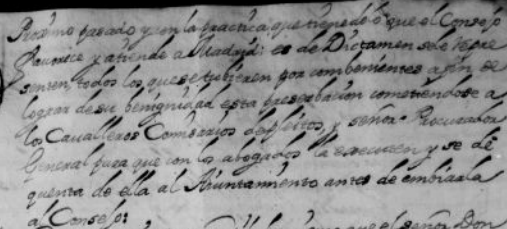 Proximo pasado y con la practica que tiene de lo que el Consejo
favorece y atiende a Madrid: es de Dictamen se le repre
senten, todos los que se tubieren por combenientes a fin de
lograr de su benignidad esta preserbacion cometiendose a
los Cavalleros Comisarios de pleitos, y señor Procurador
General para que con los abogados la executen y se de
quenta de ella al Ayuntamiento antes de embiarla
al Consejo:
que el señor Don